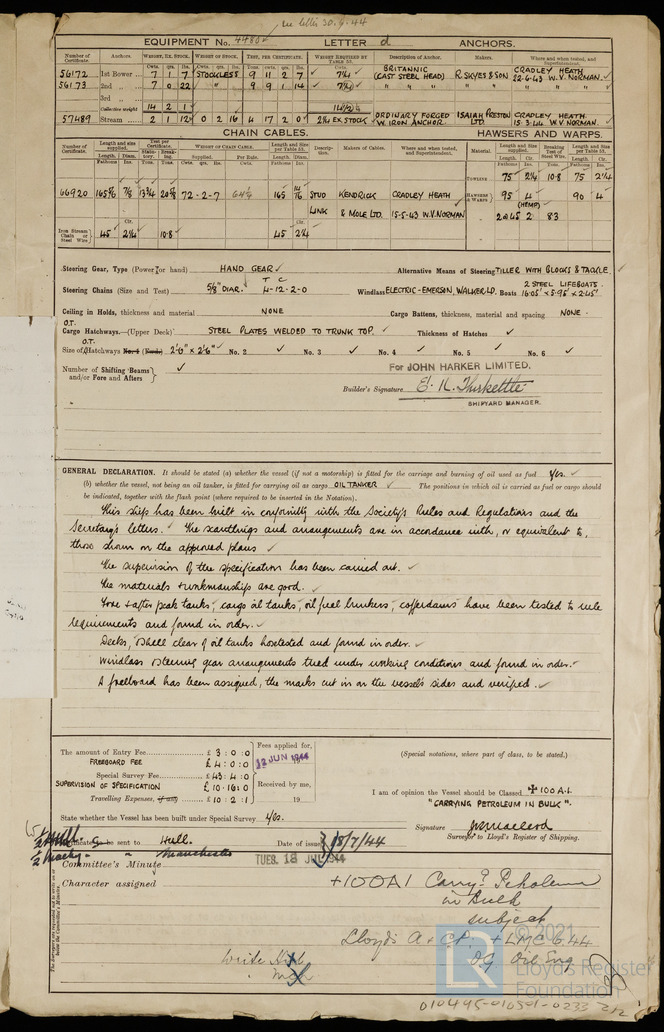 see letter 30.6.44
EQUIPMENT No. 4480 LETTER d ANCHORS.
Number of Certificate. Anchors WEIGHT, EX. STOCK. WEIGHT OF STOCK. TEST, PER CERTIFICATE. WEIGHT REQUIRED BY TABLE 53. Description of Anchor. Makers. Where and when tested, and Superintendent.
Cwts. qrs. lbs. Cwts. qrs. lbs. Tons. cwts. qrs. lbs. Cwts.
56172 1st Bower 7 1 7 STOCKLESS 9 11 2 7 7¼ BRITANNIC (CAST STEEL HEAD) R. SKYES & SON CRADLEY HEATH 22-6-43 W.V. NORMAN.
56173 2nd " 7 0 22 " 9 9 1 14 7¼ " " " " " "
3rd "
Collective weight 14 2 1 14½
57489 Stream 2 1 12 0 2 16 4 17 2 0 2¼ EX STOCK ORDINARY FORGED W. IRON ANCHOR. ISAIAH PRESTON LTD. CRADLEY HEATH 15-3-44 W.V. NORMAN.
CHAIN CABLES. HAWSERS AND WARPS.
Number of Certificate. Length and size supplied. Test per Certificate WEIGHT OF CHAIN CABLE. Length and size per Table 53. Description. Makers of Cables. Where and when tested, and Superintendent. Material. Length and size supplied. Breaking Test of Steel Wire. Length and size per Table 53.
TOWLINE 75 2¼ 10·8 75 2¼
66920 165 7/8 72-2-7 64¾ 165 STUD LINK KENDRICK & MOLE LTD. CRADLEY HEATH 15-5-43 W.V. NORMAN HAWSERS & WARPS 95 4 (HEMP) 90 4
2@45 2 83
Iron Stream Chain or Steel Wire 45 2¼ 10·8 45 2¼
Steering Gear, Type (Power or hand) HAND GEAR Alternative Means of Steering TILLER WITH BLOCKS & TACKLE.
Steering Chains (Size and Test) 5/8" DIAR. T C 4-12-2-0 Windlass ELECTRIC-EMERSON, WALKER LD. Boats 2 STEEL LIFEBOATS. 16·05' x 5·95' x 2·45'
Ceiling in Holds, thickness and material NONE Cargo Battens, thickness, material and spacing NONE
O.T.
Cargo Hatchways.—(Upper Deck) STEEL PLATES WELDED TO TRUNK TOP. Thickness of Hatches
O.T.
Size of Hatchways No. 1 2'6" x 2'6" No. 2 No. 3 No. 4 No. 5 No. 6
Number of Shifting Beams and/or Fore and Afters
For JOHN HARKER LIMITED.
Builder's Signature
SHIPYARD MANAGER.
GENERAL DECLARATION. It should be stated (a) whether the vessel (if not a motorship) is fitted for the carriage and burning of oil used as fuel Yes.
(b) whether the vessel, not being an oil tanker, is fitted for carrying oil as cargo OIL TANKER The positions in which oil is carried as fuel or cargo should
be indicated, together with the flash point (where required to be inserted in the Notation).
This ship has been built in conformity with the Society's Rules and Regulations and the
Secretary's letters. The scantlings and arrangements are in accordance with, or equivalent to,
those shown on the approved plans
The supervision of the specification has been carried out.
The materials & workmanship are good.
Fore & after peak tanks, cargo oil tanks, oil fuel bunkers, cofferdams have been tested to rule
requirements and found in order.
Decks, & shell clear of oil tanks hosetested and found in order.
Windlass & steering gear arrangements tried under working conditions and found in order.
A freeboard has been assigned, the marks cut in on the vessel's sides and verified.
The amount of Entry Fee £ 3 : 0 : 0 Fees applied for, 12 JUN 1944
FREEBOARD FEE £ 4 : 0 : 0
Special Survey Fee £ 43 : 4 : 0
SUPERVISION OF SPECIFICATION £ 10 · 16 : 0 Received by me,
Travelling Expenses, (if any) £ 10 : 2 : 1 19
(Special notations, where part of class, to be stated.)
I am of opinion the Vessel should be Classed ✠ 100 A.1.
"CARRYING PETROLEUM IN BULK".
State whether the Vessel has been built under Special Survey Yes.
Signature J. Macleod
Surveyor to Lloyd's Register of Shipping.
Certificate to be sent to Hull. Date of issue 18/7/44
Manchester
Committee's Minute TUES. 18 JUL 1944
Character assigned +100A1 Carryg Petroleum
in Bulk
subject
Lloyd's A & CP. + LMC 6.44
O.G. Oil Eng
Write Hull
The Surveyors are requested not to write on or below the Committee's Minute.
LR
© 2021
Lloyd's Register
Foundation
010495-010501-0233 2/2